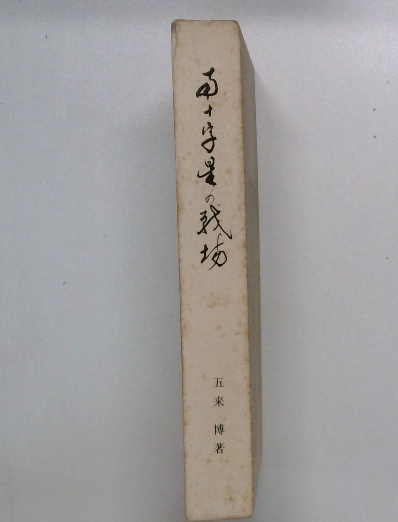 南十字星の戦場
五来 博著